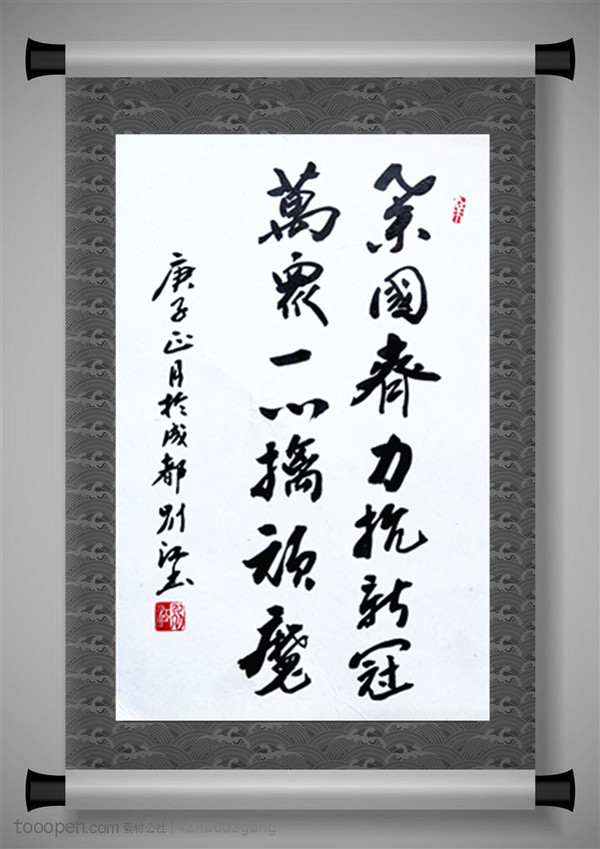 举國齊力抗新冠
萬眾一心擒頑魔
庚子正月於成都別江
tooopen.com 素材公社